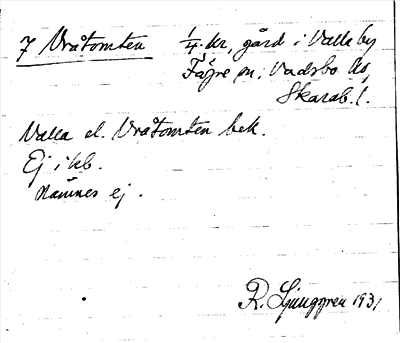 7 Vråtomten 1/4 kr, gård i Valla by
Fägre sn, Vadsbo hd,
Skarab. l.
Valla el. Vråtomten bek.
Ej i kb.
Nämnes ej.
R. Ljunggren 1931